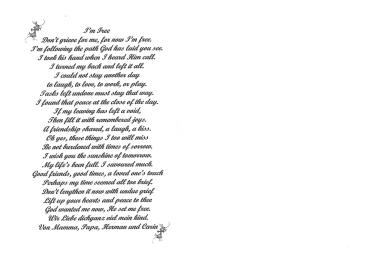 I'm Free
Don't grieve for me, for now I'm free.
I'm following the path God has laid you see.
I took his hand when I heard Him call.
I turned my back and left it all.
I could not stay another day
to laugh, to love, to work, or play.
Tasks left undone must stay that way.
I found that peace at the close of the day.
If my leaving has left a void,
Then fill it with remembered joys.
A friendship shared, a laugh, a kiss.
Oh yes, these things I too will miss
Be not burdened with times of sorrow,
I wish you the sunshine of tomorrow.
My life's been full. I savoured much.
Good friends, good times, a loved one's touch
Perhaps my time seemed all too brief.
Don't lengthen it now with undue grief
Lift up your hearts and peace to thee
God wanted me now, He set me free.
Wir Liebe dichganz viel mein kind.
Von Mamma, Papa, Herman und Carin